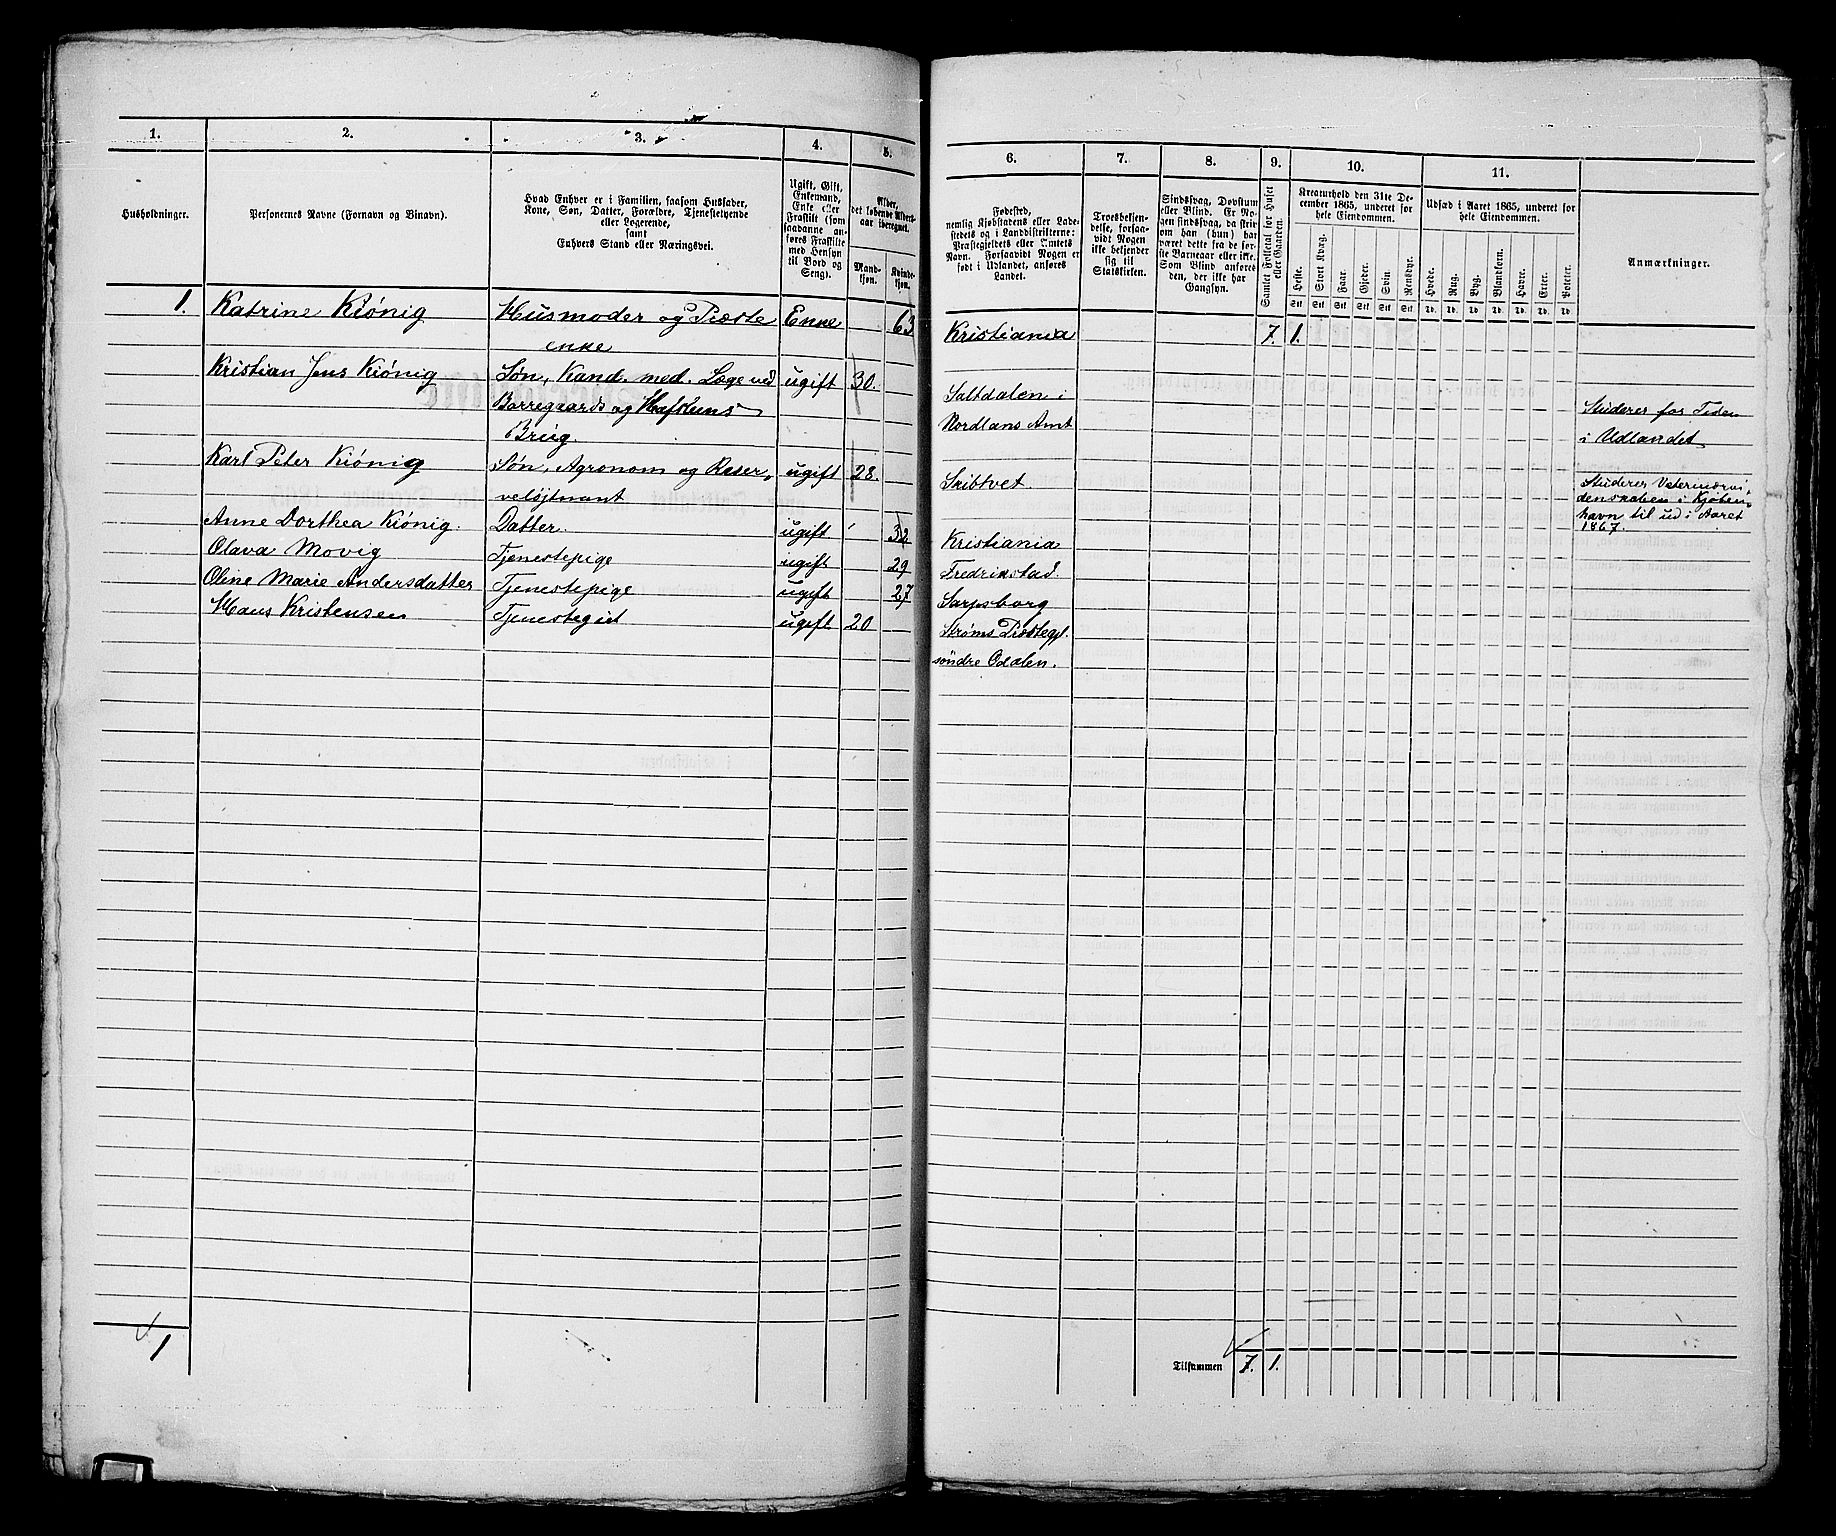 1.
2.
3.
4.
5.
Husholdninger.
Personernes Navne (Fornavn og Binavn).
Hvad Enhver er i Familien, saasom Husfader,
Kone, Søn, Datter, Forældre, Tjenestetyende
eller Logerende,
samt
Enhvers Stand eller Næringsvei.
Ugift, Gift,
Enkemand,
Enke eller
Fraskilt (som
saadanne an-
føres Fraskilte
med Hensyn
til Bord og
Seng).
Alder,
det løbende Alders-
aar iberegnet.
Mand-
kjøn.
Kvinde-
kjøn.
1. Katrine Kiönig Husmoder og Præste Enke 63
enke
Kristian Jens Kiönig Søn, Kand. med. Læge ved ugift 30.
Borregaards og Hafslunds
Brug.
Karl Peter Kiönig Søn, Agronom og Reser- ugift 28.
veløjtnant
Anne Dorthea Kiönig. Datter. ugift 32
Olava Movig Tjenestepige ugift 29
Oline Marie Andersdatter Tjenestepige ugift 27
Hans Kristensen Tjenestegut ugift 20
1
6.
7.
8.
9.
10.
11.
Fødested,
nemlig Kjøbstadens eller Lade-
stedets og i Landdistrikterne:
Præstegjeldets eller Amtets
Navn. Forsaavidt Nogen er
født i Udlandet, anføres
Landet.
Troesbekjen-
delse, forsaa-
vidt Nogen
ikke bekjender
sig til
Statskirken.
Sindssvag, Døvstum
eller Blind. Er No-
gen sindssvag, da skri-
ves om han (hun) har
været dette fra de før-
ste Barneaar eller ikke.
Som Blind anføres
den, der ikke har
Gangsyn.
Samlet Folketal for Huset
eller Gaarden.
Kreaturhold den 31te De-
cember 1865, underet for
hele Eiendommen.
Heste. Stort Kvæg. Faar. Gjeder. Svin. Rensdyr.
Stk Stk Stk Stk Stk Stk
Udsæd i Aaret 1865, underet for
hele Eiendommen.
Hvede. Rug. Byg. Blandkorn. Havre. Erter. Poteter.
Td. Td. Td. Td. Td. Td. Td
Anmærkninger.
Kristiania 7. 1.
Saltdalen i
Nordlans Amt
Studerer for Tiden
i Udlandet
Skibtvet
Studerer Veterinærvi-
denskaben i Kjøben-
havn til ud i Aaret
1867.
Kristiania
Fredrikstad.
Sarpsborg
Strøms Præstegjl.
söndre Odalen.
Tilsammen 7. 1.